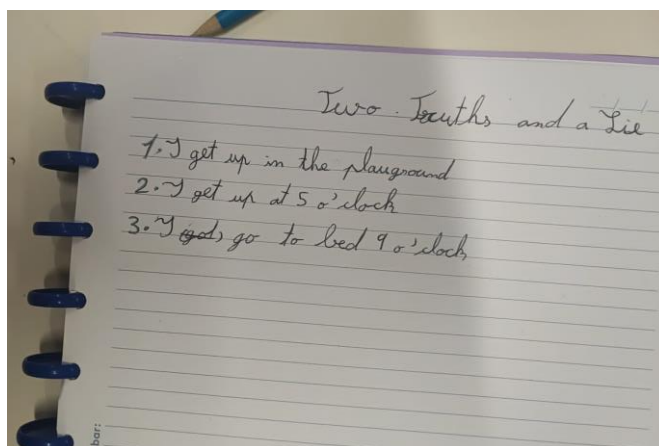 Two Truths and a Lie
1. I get up in the plauground
2. I get up at 5 o'clock
3. I go to bed 9 o'clock
bar: